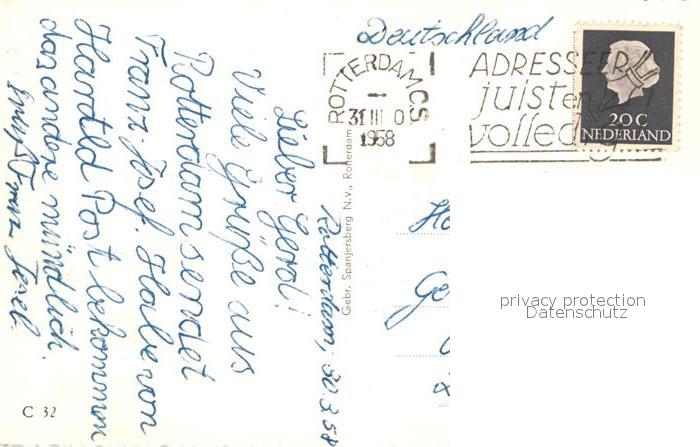 Deutschland
ROTTERDAM CS
31 III 0
1958
ADRESSEER
juist en
volled
20 C
NEDERLAND
Rotterdam, 30.3.58
Lieber Gerd!
Viele Grüße aus
Rotterdam sendet
Franz-Josef. Habe von
Harald Post bekommen
das andere mündlich.
Franz Josef.
Gebr. Spanjersberg N.V., Rotterdam
Ho
Ge
privacy protection
Datenschutz
C 32